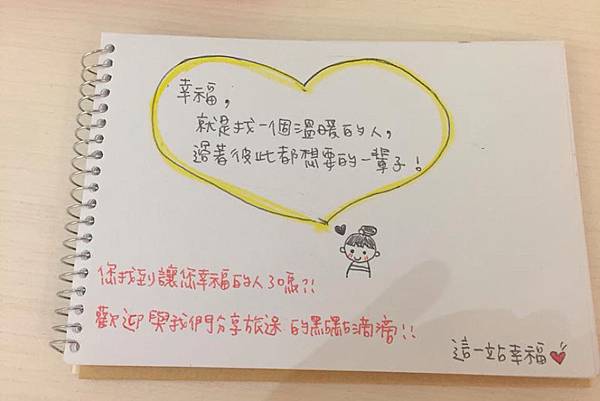 幸福,
就是找一個溫暖的人,
過著彼此都想要的一輩子!
您找到讓您幸福的人了嗎?!
歡迎與我們分享旅途的點點滴滴!!
這一站幸福